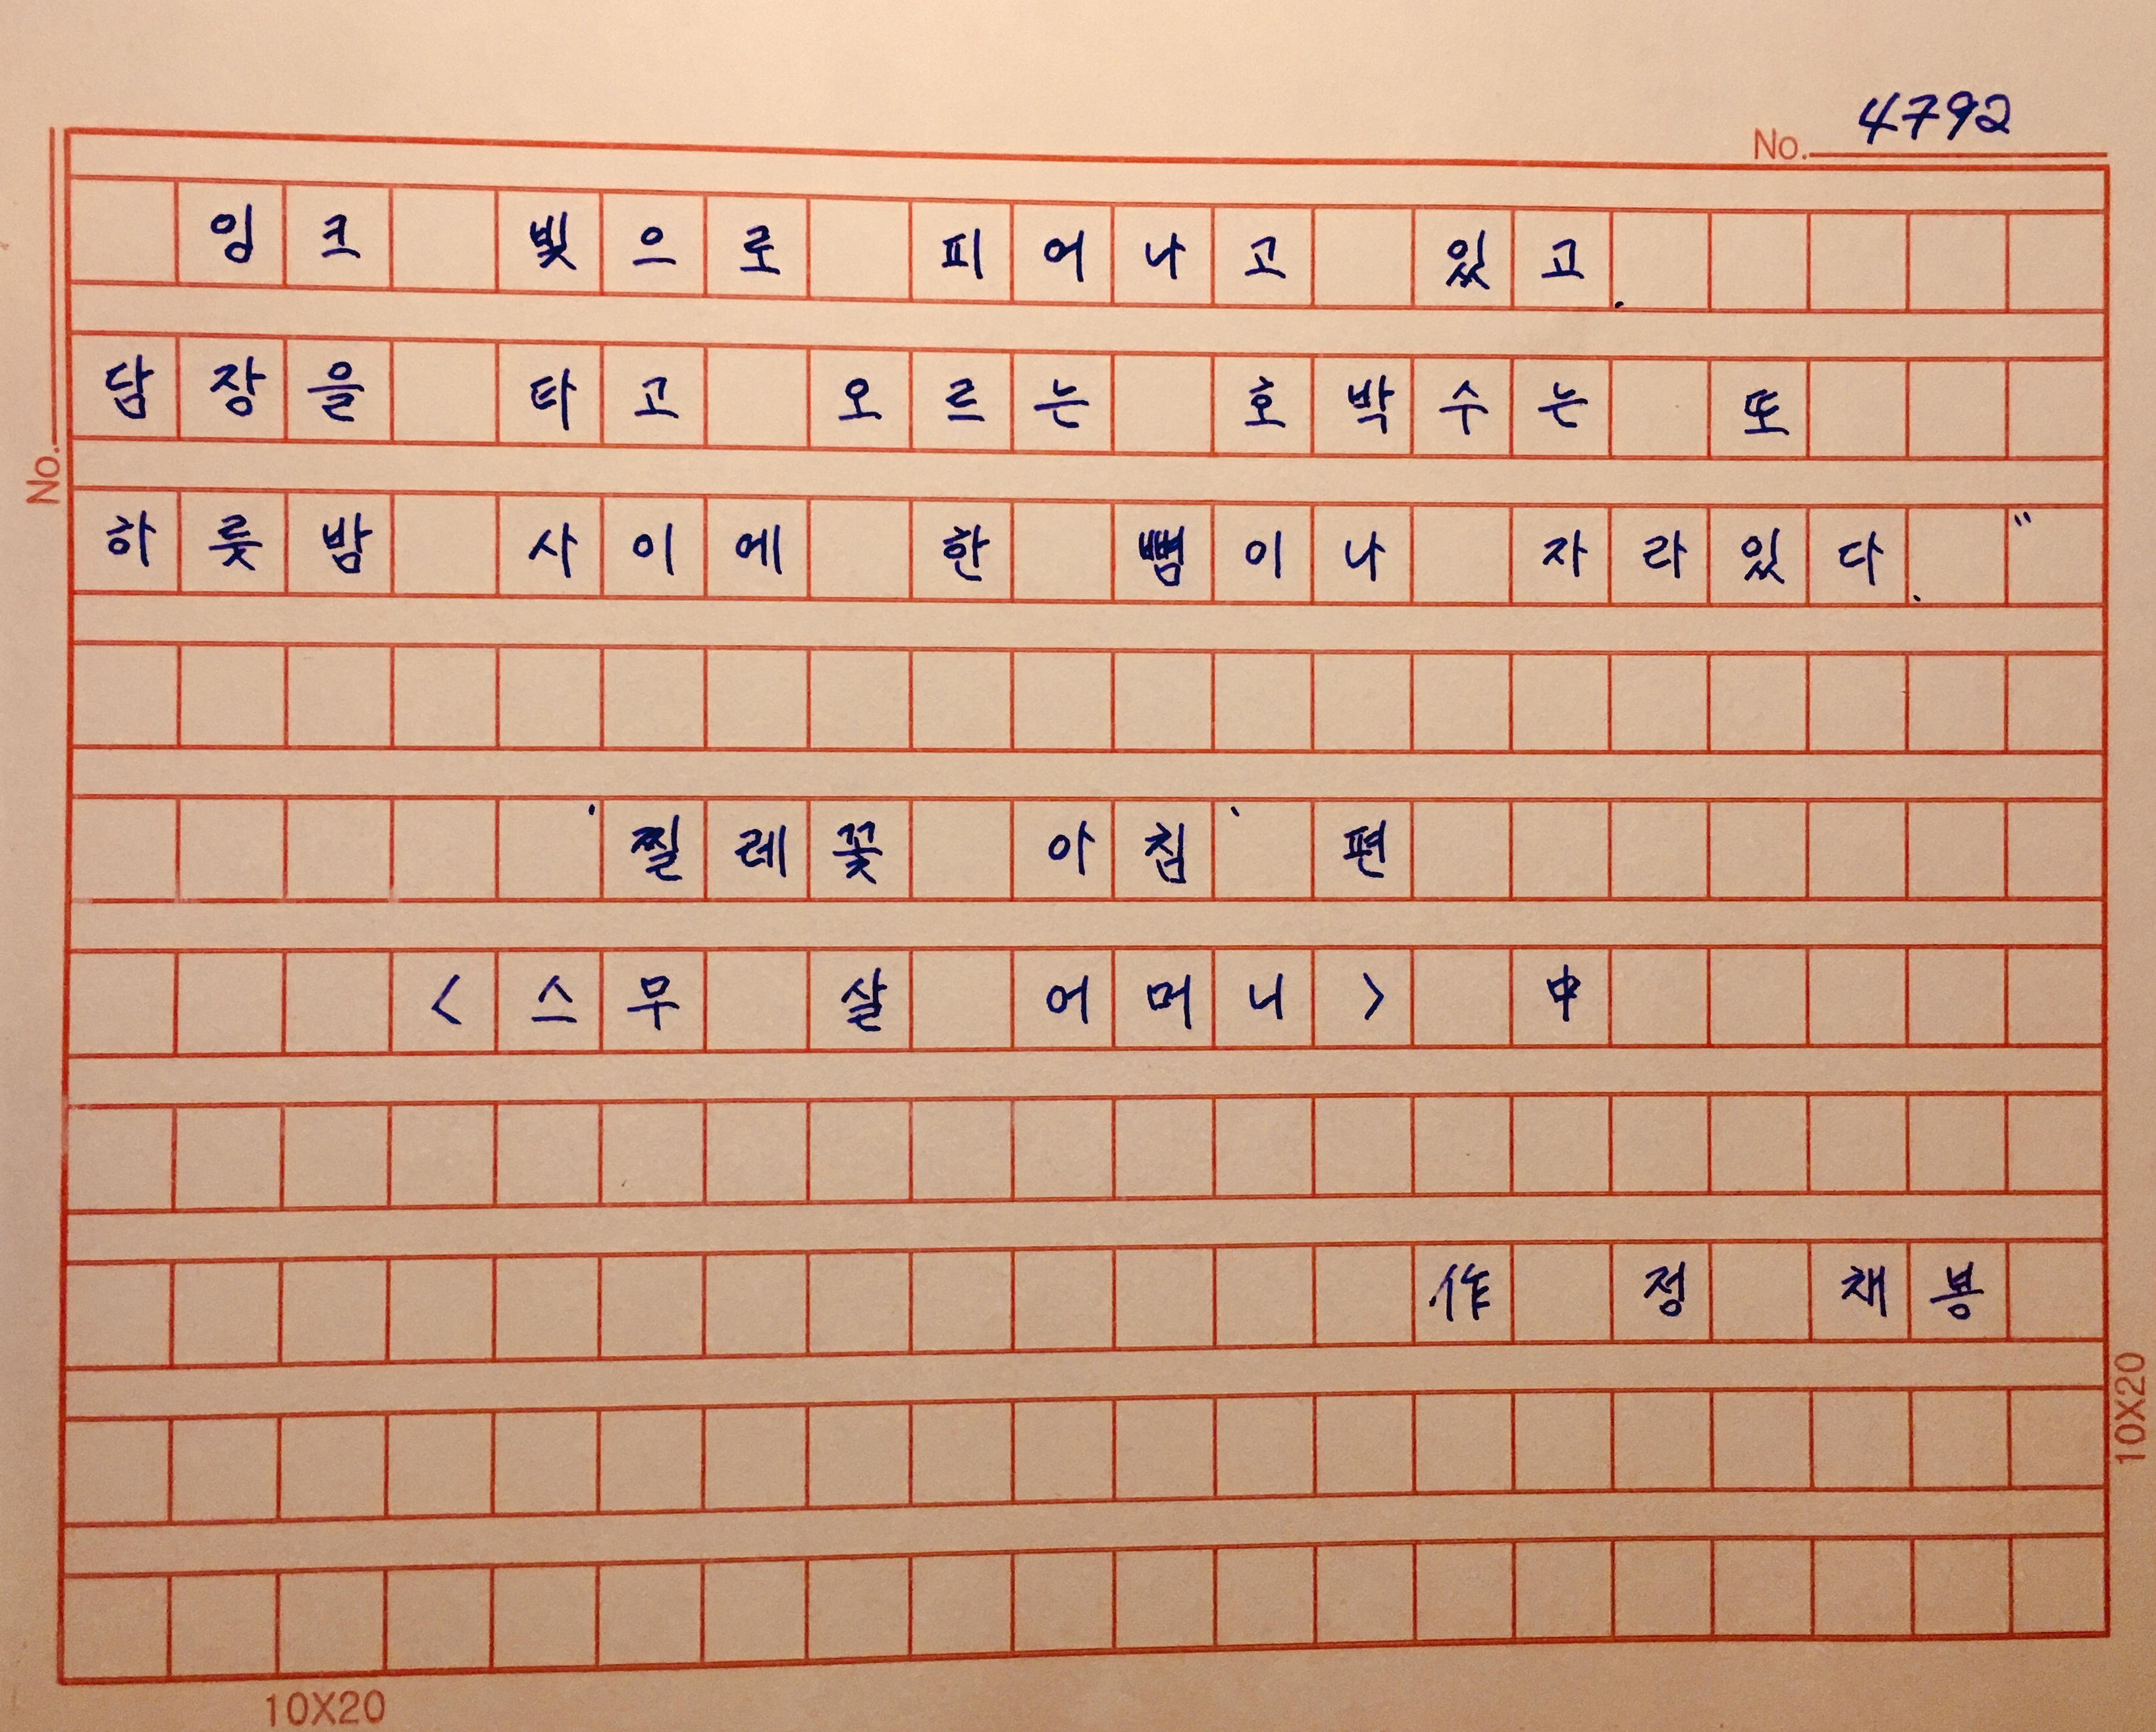 4792
No.
잉크 빛으로 피어나고 있고.
담장을 타고 오르는 호박수는 또
하룻밤 사이에 한 뼘이나 자라있다. "
No.
'찔레꽃 아침' 편
<스무 살 어머니> 中
作 정 채봉
10X20
10X20